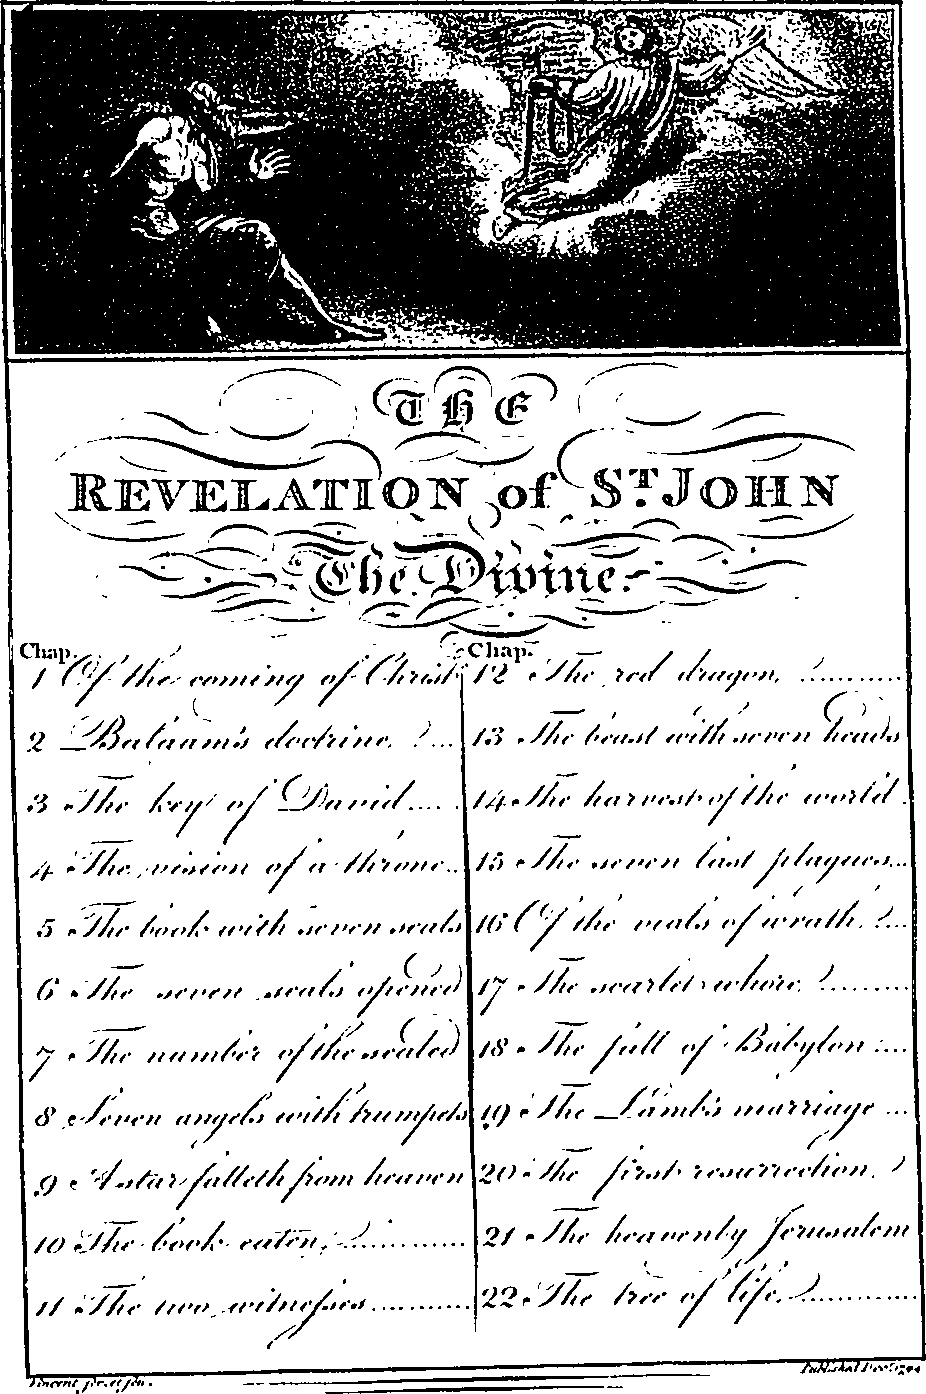 THE
REVELATION of ST. JOHN
The Divine.
Chap.
1 Of the coming of Christ
2 Balaam's doctrine.
3 The key of David....
4 The vision of a throne..
5 The book with seven seals
6 The seven seals opened
7 The number of the sealed
8 Seven angels with trumpets
9 A star falleth from heaven
10 The book eaten,............
11 The two witnesses...........
Chap.
12 The red dragon,...........
13 The beast with seven heads
14 The harvest of the world.
15 The seven last plagues...
16 Of the vials of wrath.....
17 The scarlet whore,.........
18 The fall of Babylon....
19 The Lamb's marriage ...
20 The first resurrection.
21 The heavenly Jerusalem
22 The tree of life.............
Vincent
Published